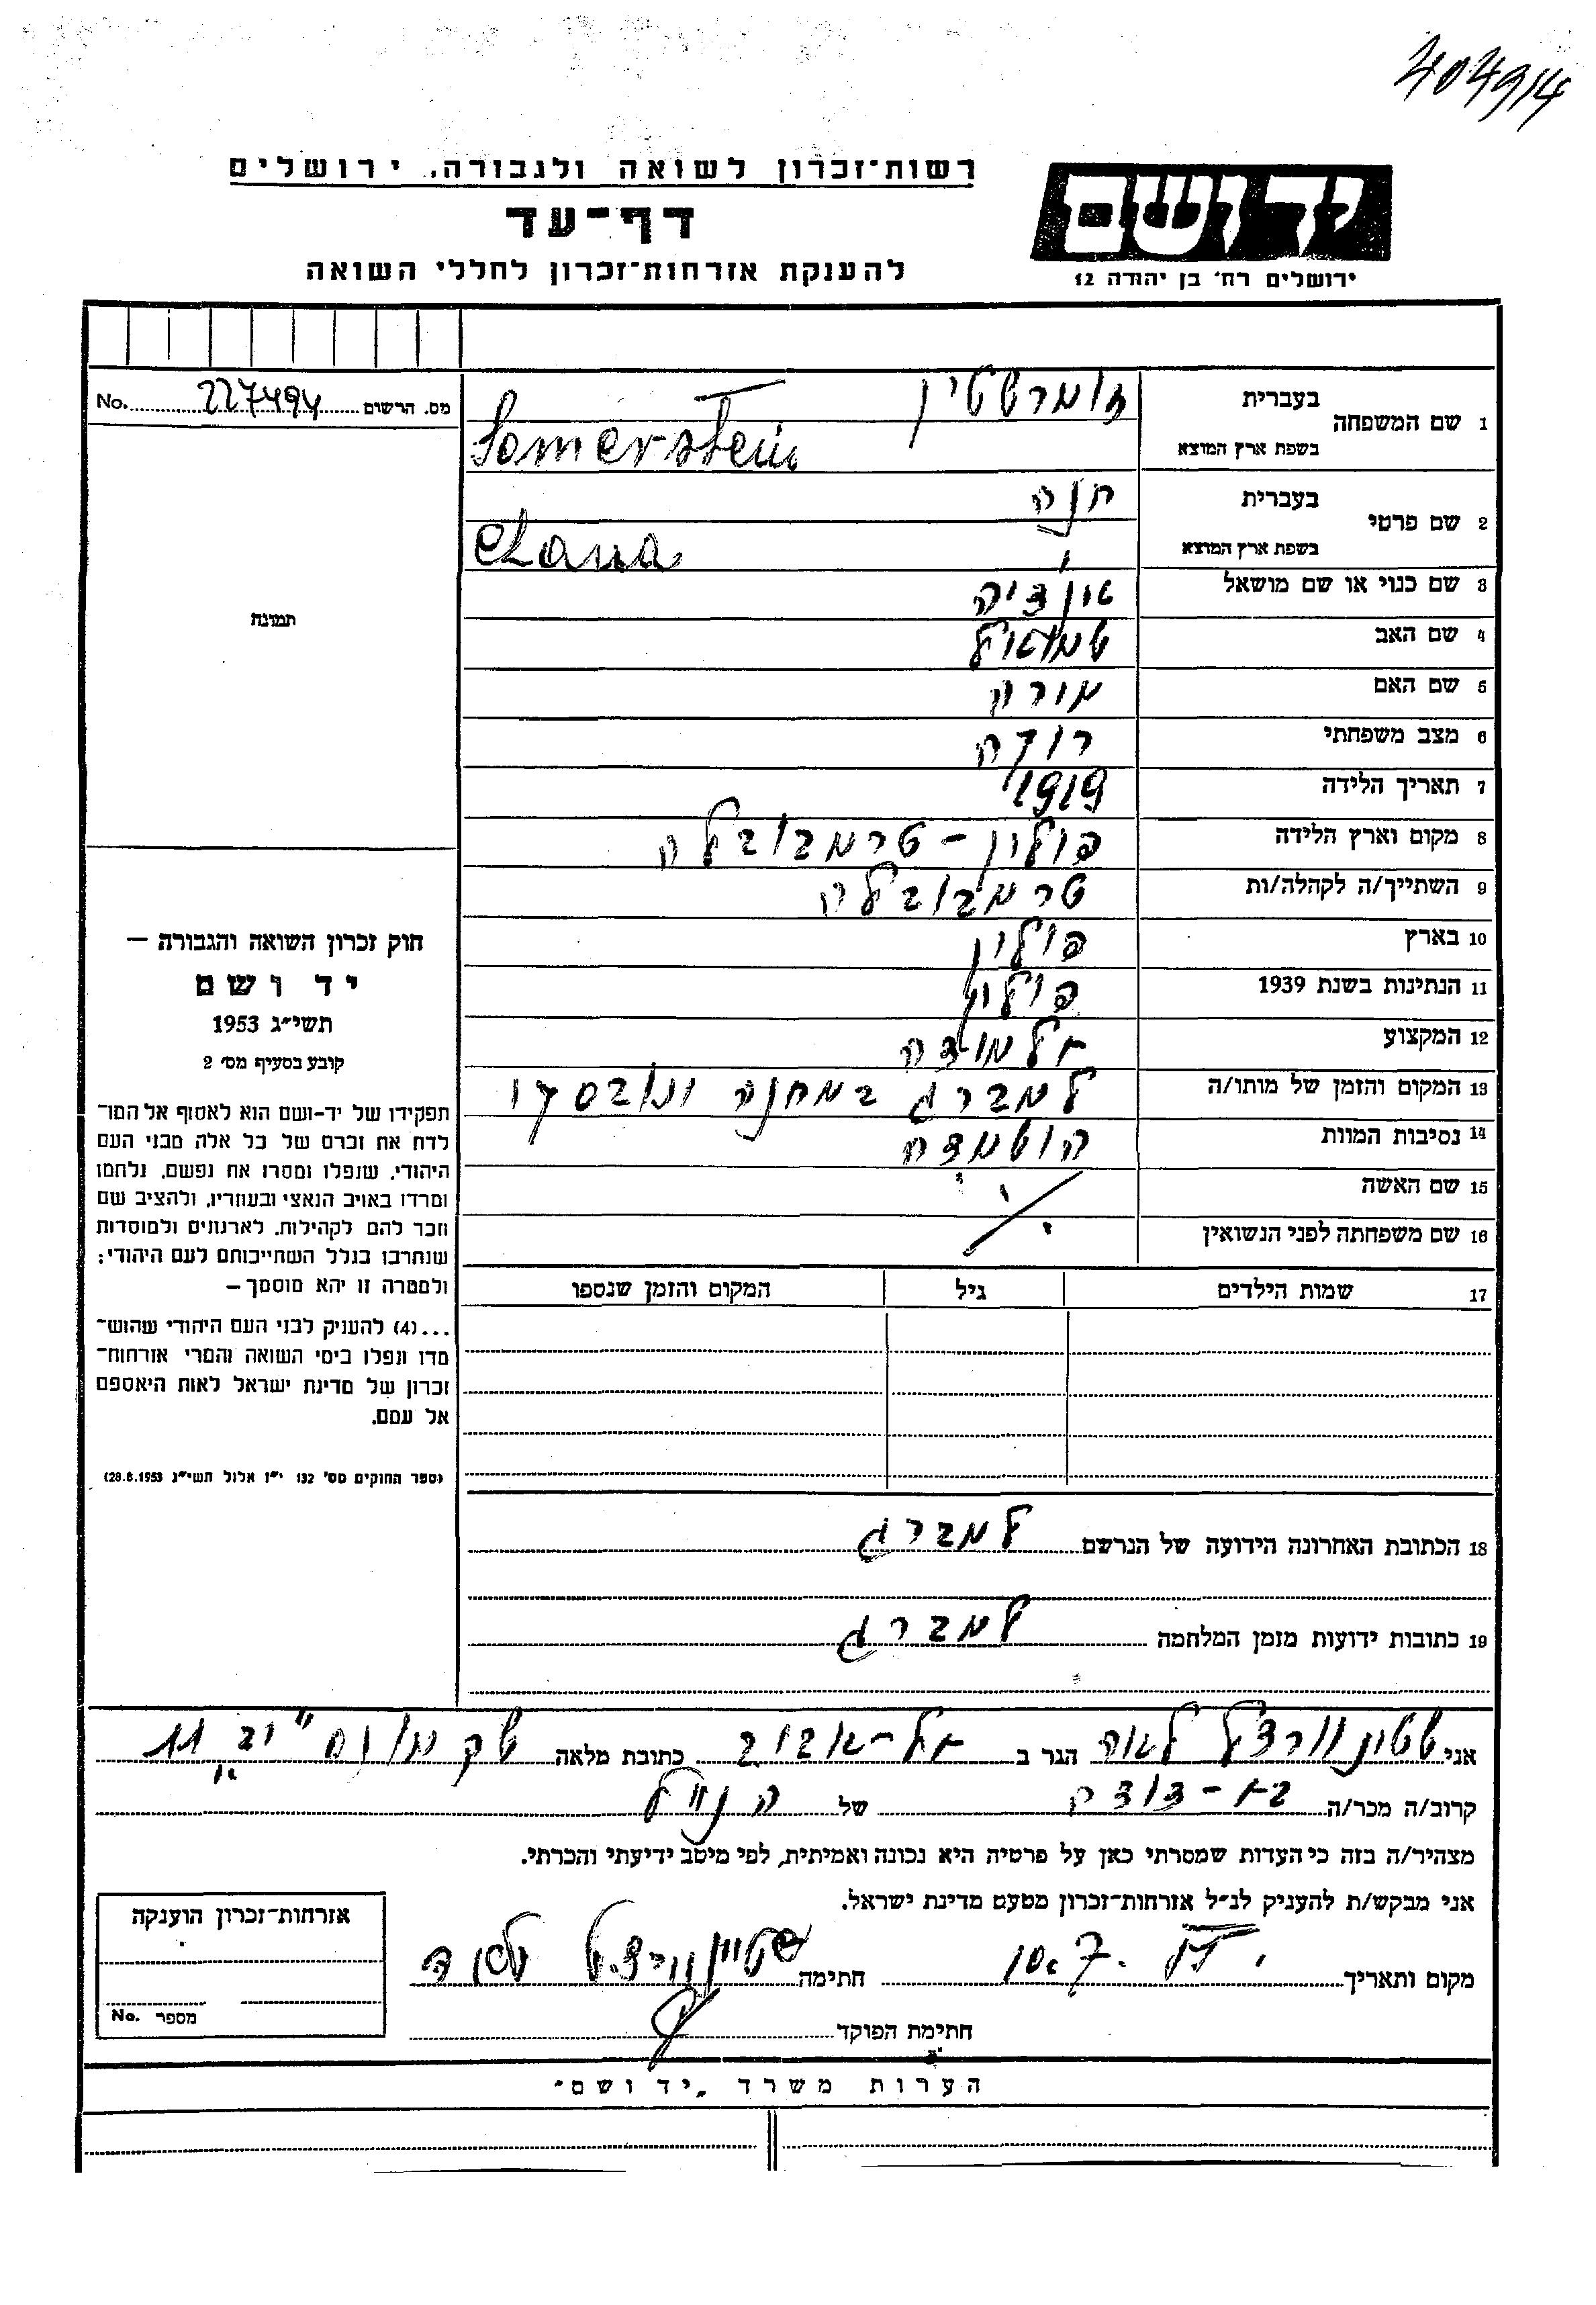 404914
רשות־זכרון לשואה ולגבורה, ירושלים
דף־עד
להענקת אזרחות־זכרון לחללי השואה
יד ושם
ירושלים רח׳ בן יהודה 12
מס. הרשום 227494 No.
1 שם המשפחה בעברית זומרשטיין
בשפת ארץ המוצא Somerstein
2 שם פרטי בעברית חנה
בשפת ארץ המוצא Chana
3 שם כנוי או שם מושאל
4 שם האב שמואל
5 שם האם
6 מצב משפחתי
7 תאריך הלידה 1919
8 מקום וארץ הלידה פולין - טרמבובלה
9 השתייך/ה לקהלה/ות טרמבובלה
10 בארץ פולין
11 הנתינות בשנת 1939
12 המקצוע
13 המקום והזמן של מותו/ה למברג במחנה
14 נסיבות המוות הושמדה
15 שם האשה
16 שם משפחתה לפני הנשואין
17 שמות הילדים גיל המקום והזמן שנספו
תמונה
חוק זכרון השואה והגבורה —
יד ושם
תשי״ג 1953
קובע בסעיף מס׳ 2
תפקידו של יד־ושם הוא לאסוף אל המו־
לדת את זכרם של כל אלה מבני העם
היהודי, שנפלו ומסרו את נפשם, נלחמו
ומרדו באויב הנאצי ובעוזריו, ולהציב שם
וזכר להם לקהילות, לארגונים ולמוסדות
שנחרבו בגלל השתייכותם לעם היהודי;
ולמטרה זו יהא מוסמך —
...(4) להעניק לבני העם היהודי שהוש־
מדו ונפלו בימי השואה והמרי אזרחות־
זכרון של מדינת ישראל לאות היאספם
אל עמם.
(ספר החוקים מס׳ 132 י״ז אלול תשי״ג 28.8.1953)
18 הכתובת האחרונה הידועה של הנרשם למברג
19 כתובות ידועות מזמן המלחמה למברג
אני לאה הגר ב תל-אביב כתובת מלאה 11
קרוב/ה מכר/ה בת-דודה של הנ"ל
מצהיר/ה בזה כי העדות שמסרתי כאן על פרטיה היא נכונה ואמיתית, לפי מיטב ידיעתי והכרתי.
אני מבקש/ת להעניק לנ״ל אזרחות־זכרון מטעם מדינת ישראל.
מקום ותאריך 10.7. חתימה
חתימת הפוקד
אזרחות־זכרון הוענקה
מספר No.
הערות משרד „יד ושם״